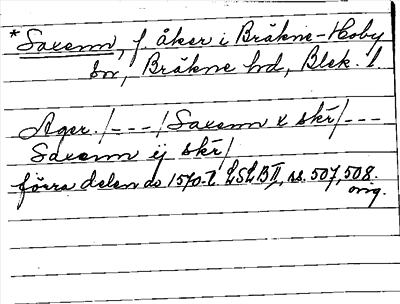 *Saxenn, f. åker i Bräkne-Hoby
sn, Bräkne hd, Blek. l.
Ager. /---/ Saxenn x skr/---
Saxenn ij skr/
förra delen av 1570-t. LSLB II, ss. 507, 508.
orig.